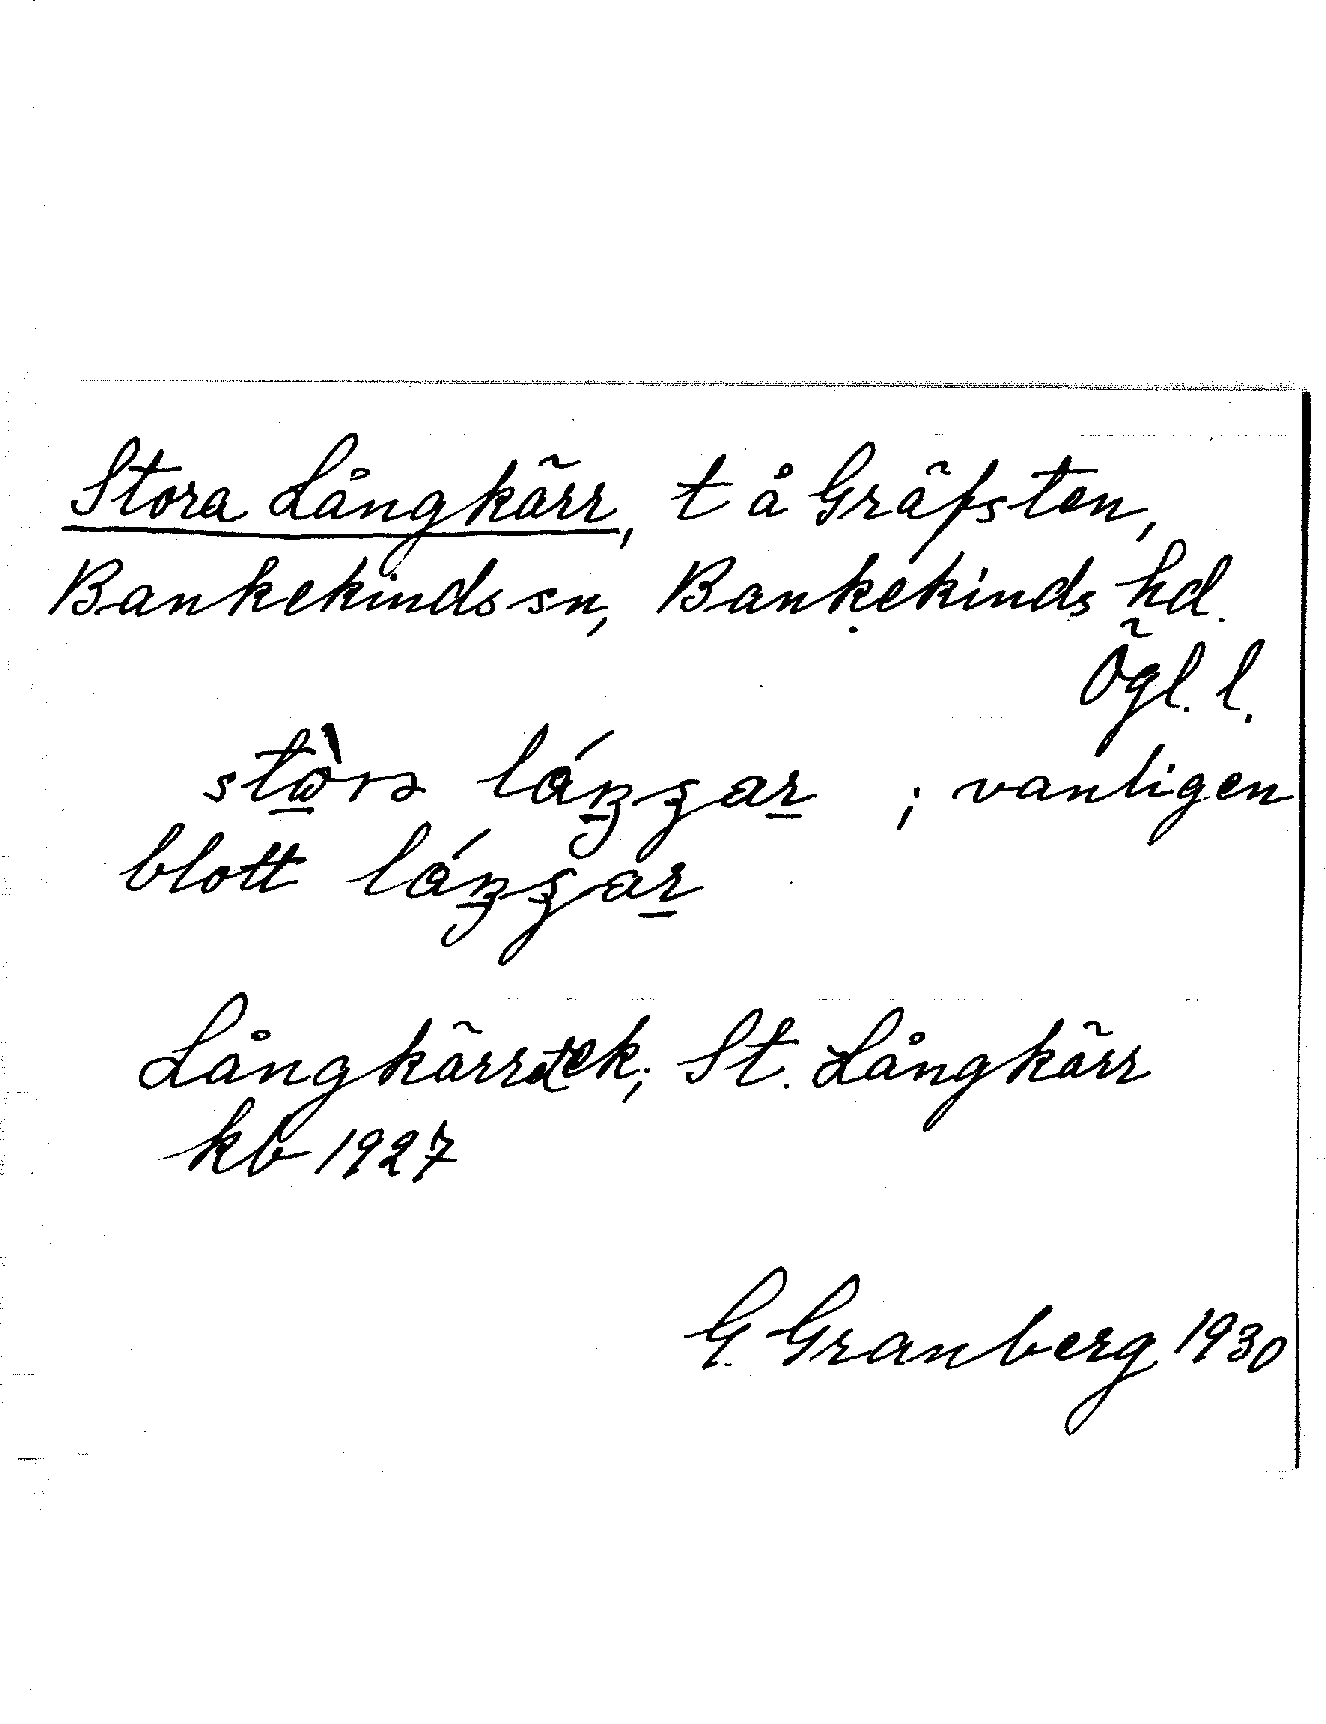 Stora Långkärr, t å Gräfsten,
Bankekinds sn, Bankekinds hd.
Ögl. l.
; vanligen
blott
Långkärr ek; St. Långkärr
kb 1927
G. Granberg 1930